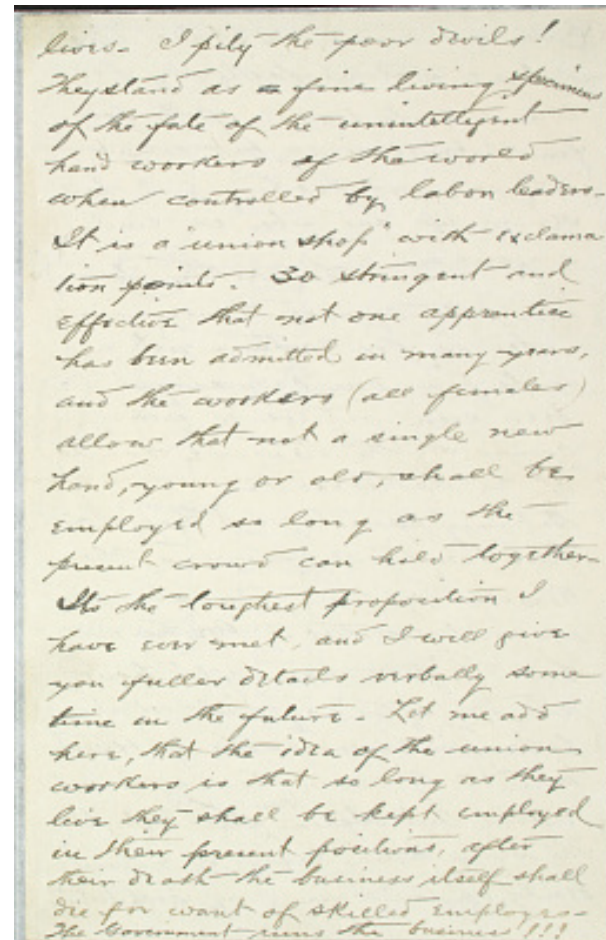 lives. I pity the poor devils!
They stand as a fine living specimen
of the fate of the unintelligent
hand workers of the world
when controlled by labor leaders.
It is a "union shop" with exclama
tion points. So stringent and
effective that not one apprentice
has been admitted in many years,
and the workers (all females)
allow that not a single new
hand, young or old, shall be
employed so long as the
present crowd can hold together.
Its the toughest proposition I
have ever met, and I will give
you fuller details verbally some
time in the future. Let me add
here, that the idea of the union
workers is that so long as they
live they shall be kept employed
in their present positions, after
their death the business itself shall
die for want of skilled employes.
The Government runs the business!!!